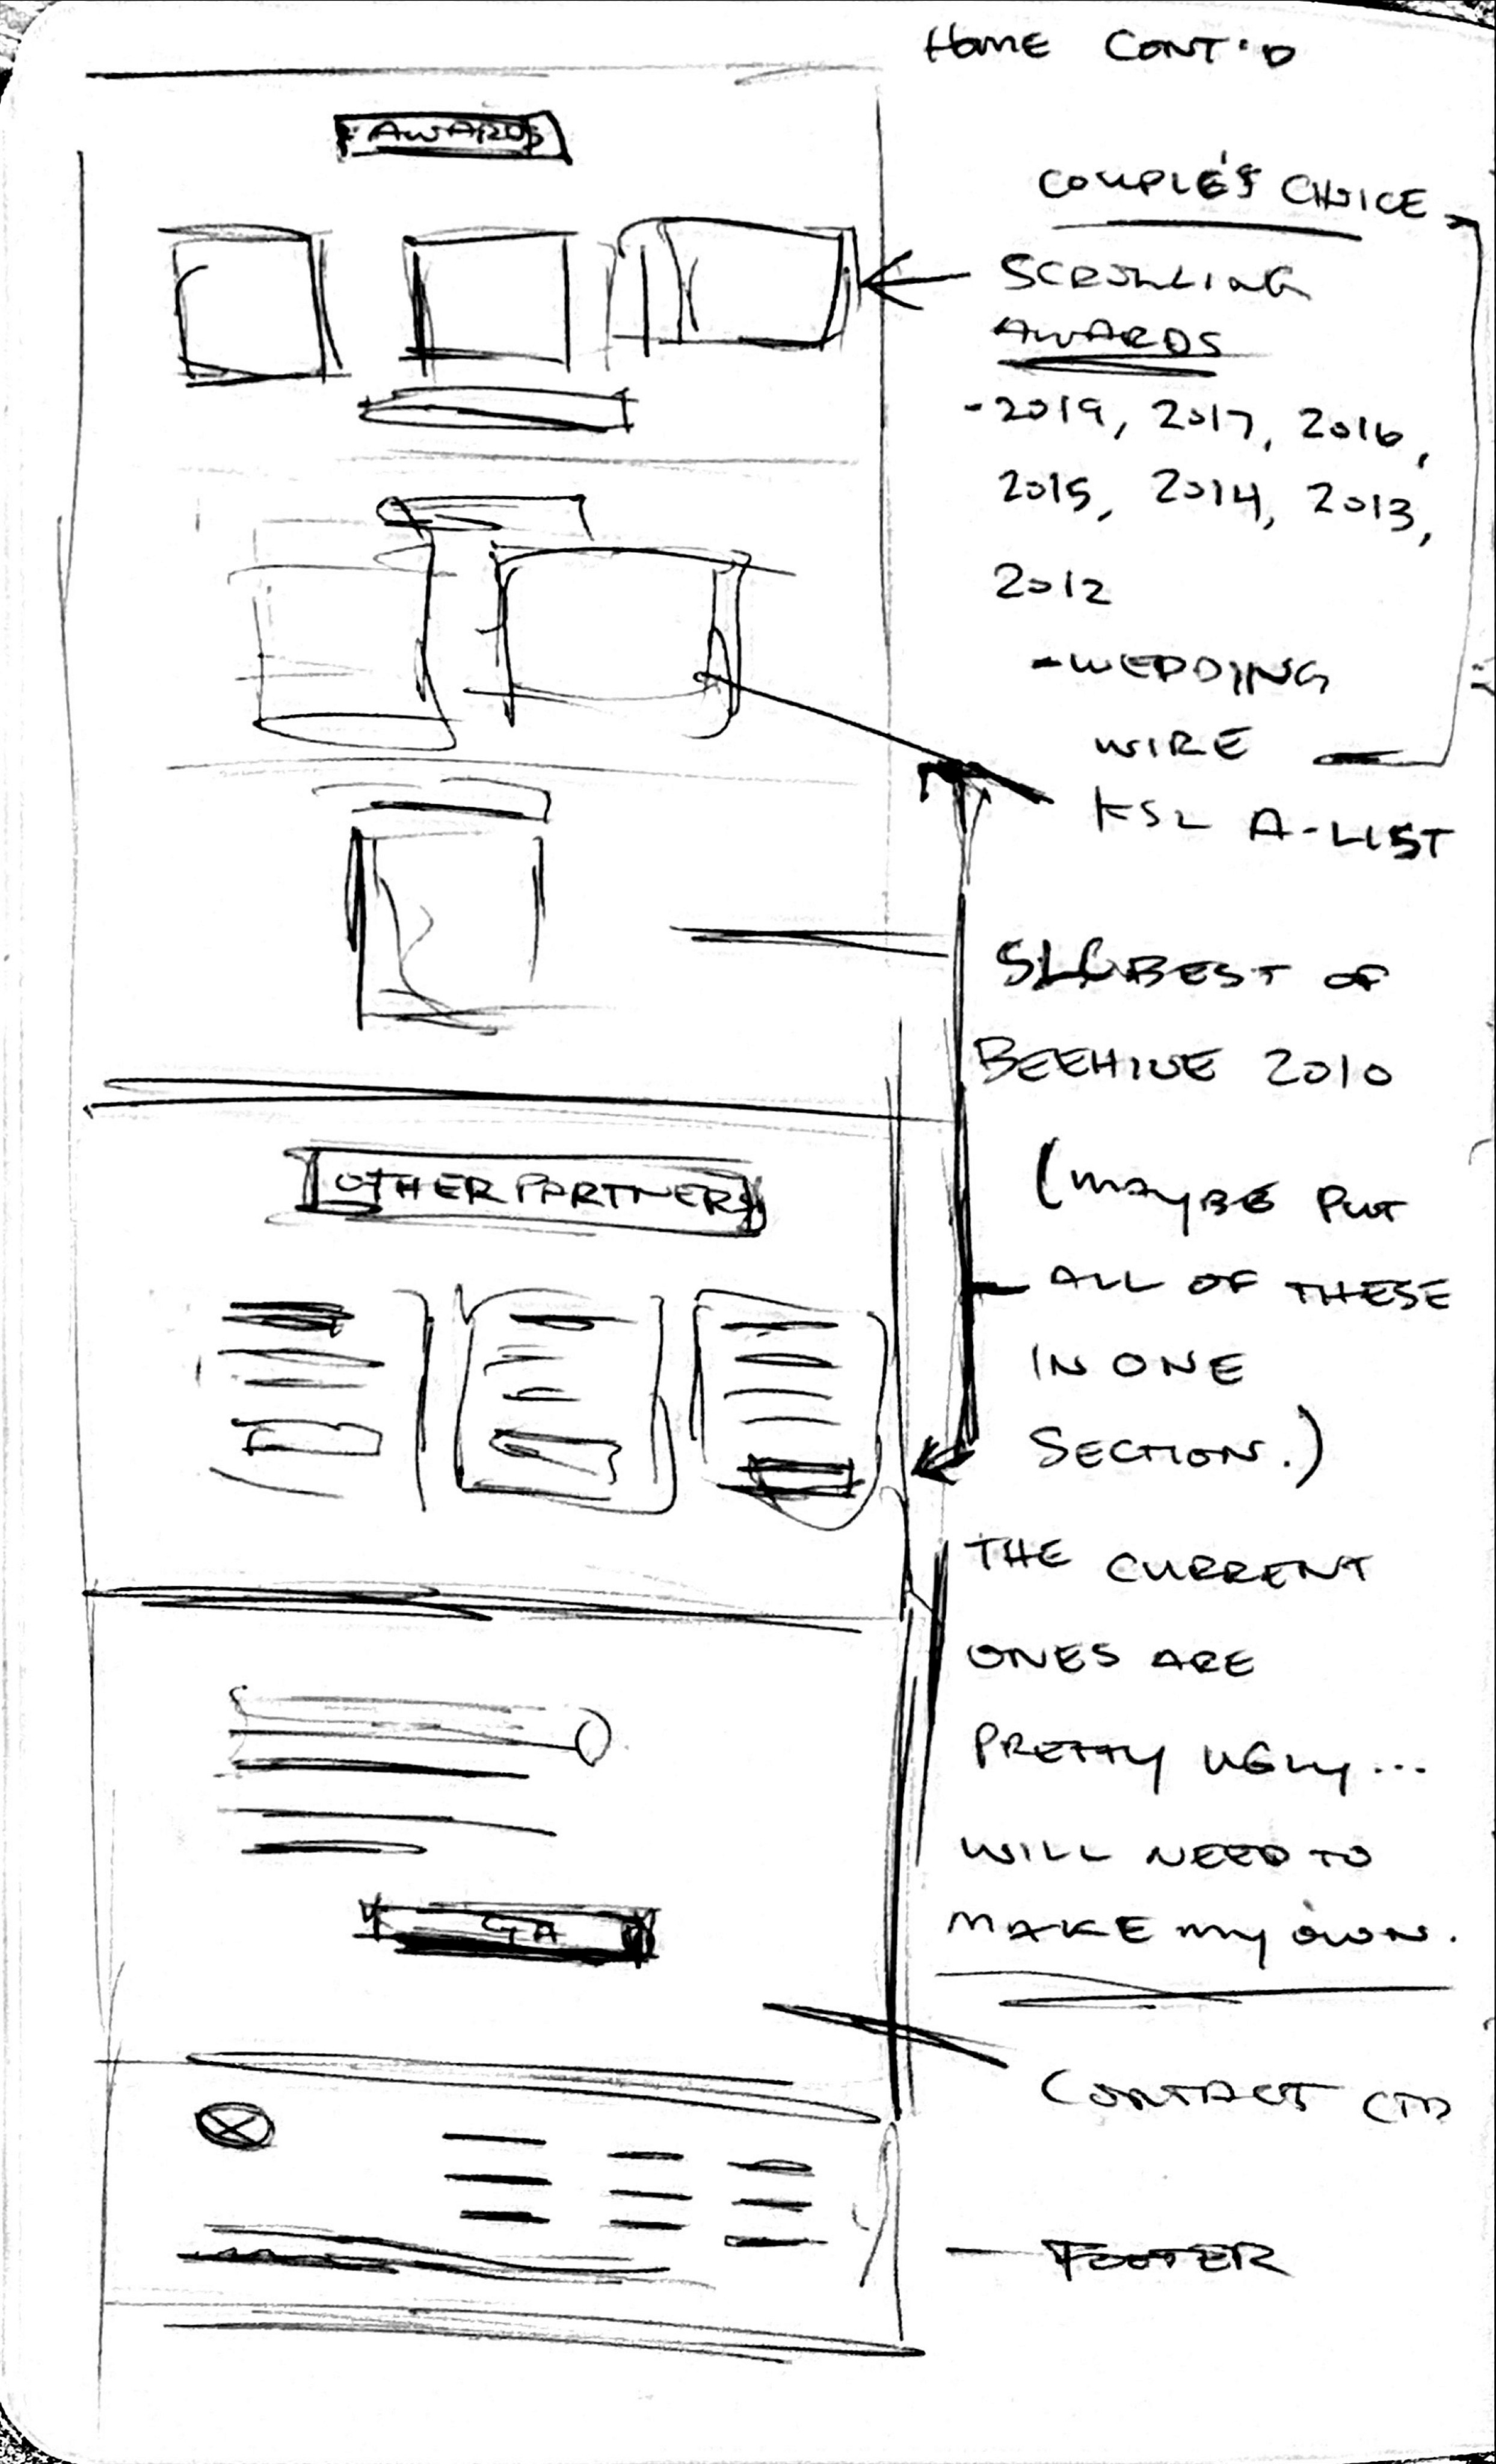 HOME CONT'D
AWARDS
COUPLE'S CHOICE
SCROLLING
AWARDS
-2019, 2017, 2016,
2015, 2014, 2013,
2012
-WEDDING
WIRE
KSL A-LIST
SLC BEST OF
BEEHIVE 2010
(MAYBE PUT
ALL OF THESE
IN ONE
SECTION.)
OTHER PARTNERS
THE CURRENT
ONES ARE
PRETTY UGLY...
WILL NEED TO
MAKE MY OWN.
CONTACT CTA
- FOOTER